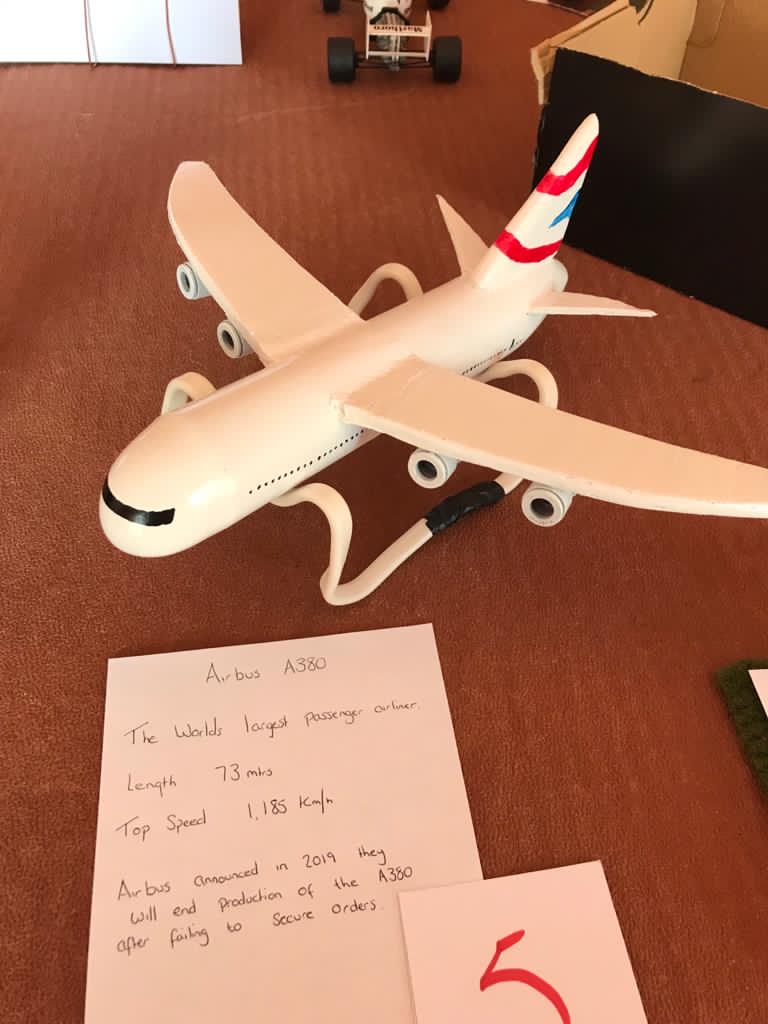 Marlboro
Airbus A380
The Worlds largest passenger airliner.
Length 73 mtrs
Top Speed 1,185 Km/h
Airbus announced in 2019 they
will end production of the A380
after failing to secure orders.
5